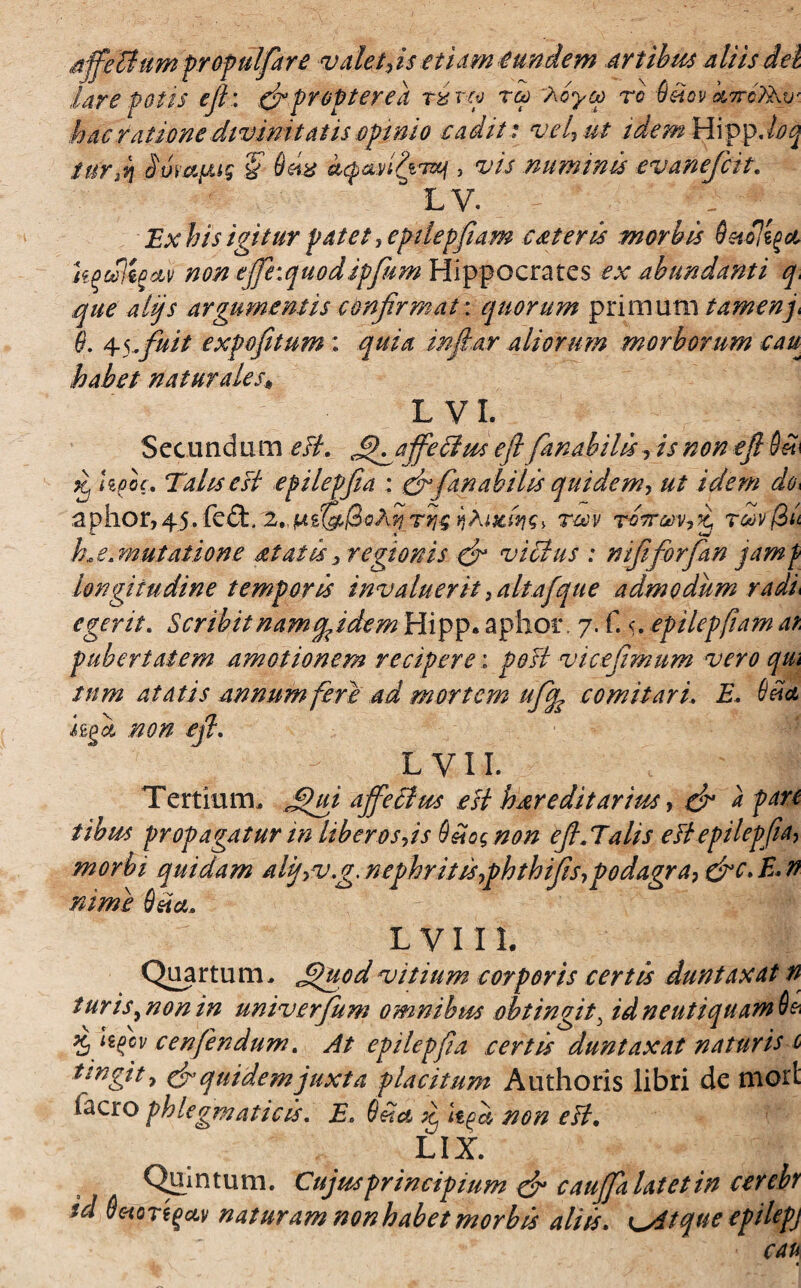 affectum propulsare valet, is etiam eundem artibus aliis del
lare potis est: & propterea τȣτω τῶ λόγω τὸ θεῖον ἀπόλλυ
hac ratione divinitatis opinio cadit: vel, ut idem Hipp. loq
tur, ἡ δύναμις ȣ͂ θείȣ ἀφανίζεται, vis numinis evanescit.
LV.
Ex his igitur patet, epilepsiam cæteris morbis θειοτέρα
ἱερωτέραν non esse: quod ipsum Hippocrates ex abundanti q
que alijs argumentis confirmat: quorum primum tamen j
θ. 45. fuit expositum: quia instar aliorum morborum cau
habet naturales.
LVI.
Secundum est. Q. affectus est sanabilis, is non est θεῖ
κ̀ ἱερὸς. Talis est epilepsia: & sanabilis quidem, ut idem do
aphor, 45. sect. 2. μεταβολὴ τῆς ἡλικίης, τῶν τόπων, κ̀ τῶν βί
h. e. mutatione ætatis, regionis & victus: nisi forsan jam p
longitudine temporis invaluerit, altasque admodùm radi
egerit. Scribit namq; idem Hipp. aphor. 7. s. 5. epilepsiam an
pubertatem amotionem recipere: post vicesimum vero qui
tum ætatis annum ferè ad mortem usq; comitari. E. θεῖα
ἱερὰ non est.
LVII.
Tertium. Qui affectus est hæreditarius, & à pare
tibus propagatur in liberos, is θεῖος non est. Talis est epilepsia,
morbi quidam alij, v.g. nephritis, phthisis, podagra, &c. E. n
nimè θεῖα.
LVIII.
Quartum. Quod vitium corporis certis duntaxat n
turis, non in universum omnibus obtingit, id neutiquam θε
κ̀ ἱερὸν censendum. At epilepsia certis duntaxat naturis c
tingit, & quidem juxta placitum Authoris libri de morb
sacro phlegmaticis. E. θεῖα κ̀ ἱερὰ non est.
LIX.
Quintum. Cujus principium & caussa latet in cerebr
id θειοτέραν naturam non habet morbis aliis. Atque epileps
cau